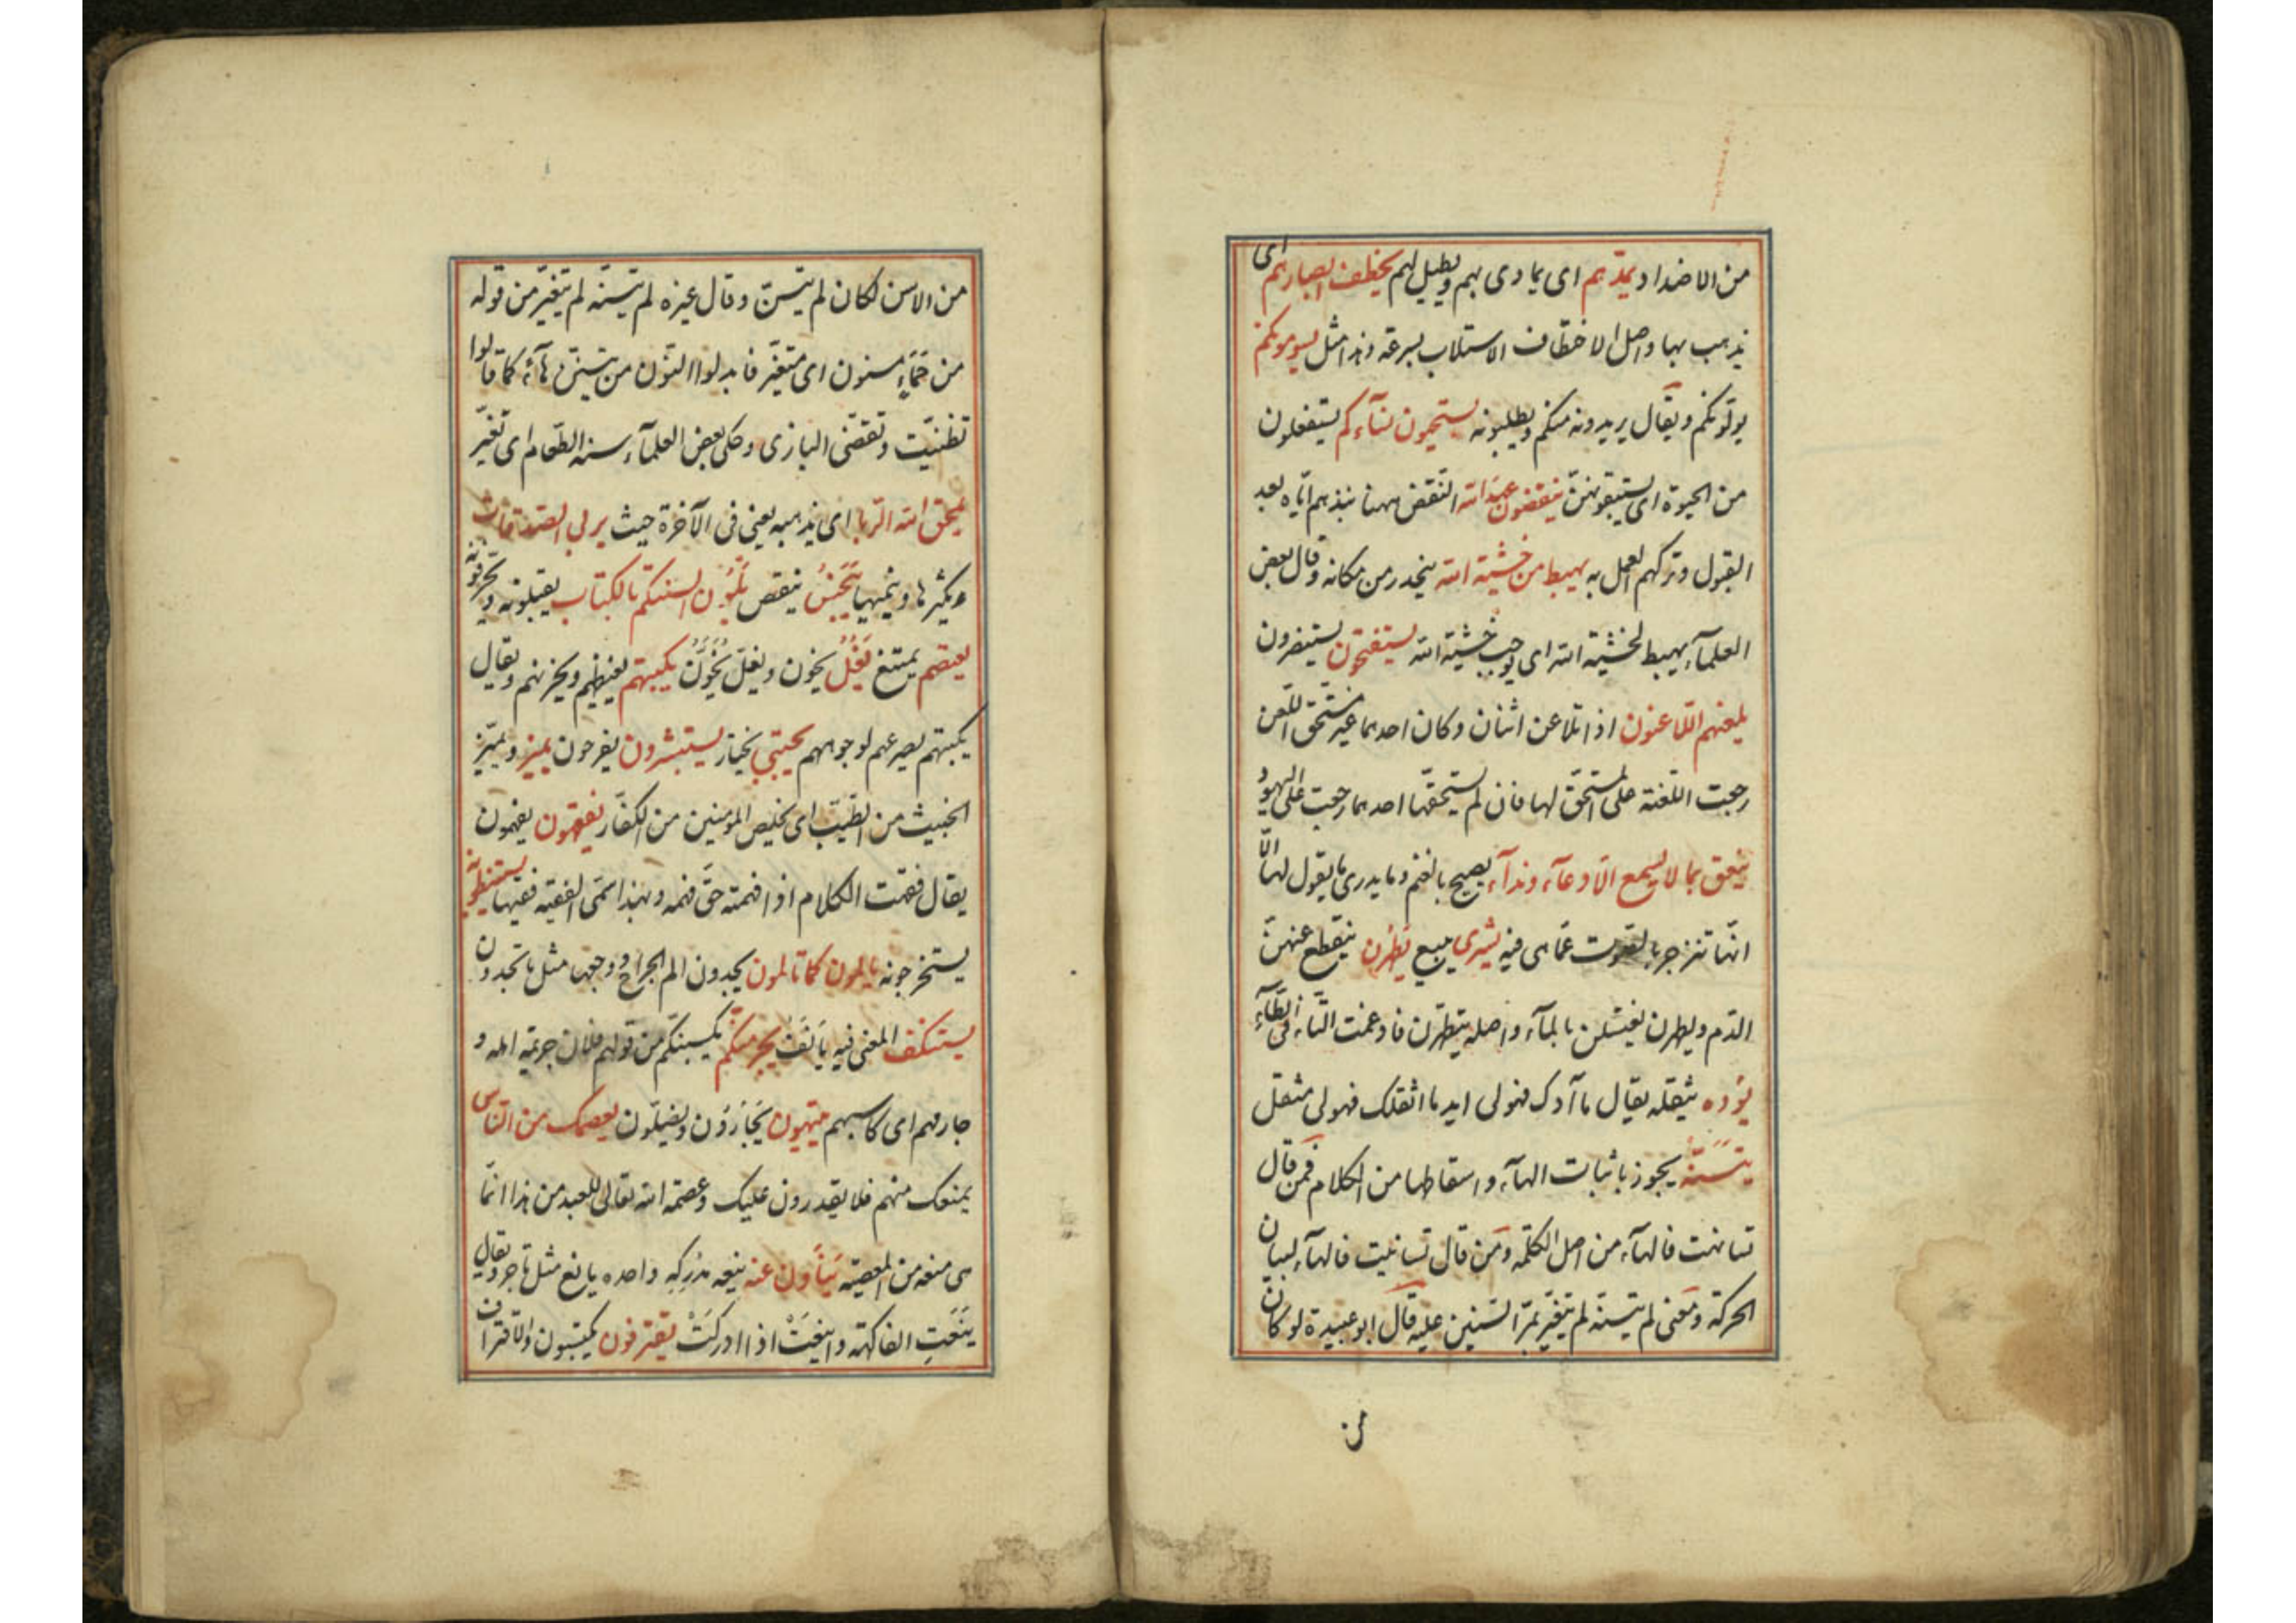 من الاضداد يمدّهم اى يمادى بهم ويطيل لهم يخطف ابصارهم اى
يذهب بها واصل الاختطاف الاستلاب بسرعة وهذا مثل يسومونكم
يولونكم ويقال يريدونه منكم ويطلبونه يستحيون نسآءكم يستفعلون
من الحيوة اى يستبقونهنّ ينقضون عهد الله النقض ههنا نبذهم ايّاه بعد
القبول وتركهم العمل به يهبط من خشية الله ينحدر من مكانه وقال بعض
العلمآء يهبط لخشية الله اى يوجب خشية الله يستفتحون يستنصرون
يلعنهم اللّاعنون اذا تلاعن اثنان وكان احدهما غير مستحق اللّعن
رجعت اللعنة على المستحق لها فان لم يستحقّها احدهما رجعت على اليهود
ينعق بما لا يسمع الّا دعآء وندآء يصيح بالغنم وما يدرى ما يقول لها الّا
انّها تنزجر بالصوت عمّا هى فيه يشرى يبيع يَطْهُرن ينقطع عنهنّ
الدّم ويطهرن يغتسلن بالمآء واصله يتطهّرن فادغمت التّاء فى الطّآء
يؤده يثقله يقال ما آدك فهو لى ايد ما اثقلك فهو لى مثقل
يتسنّه يجوز باثبات الهآء واسقاطها من الكلام فمن قال
تسانهت فالهآء من اصل الكلمة ومن قال تسانيت فالهآء لبيان
الحركة ومعنى لم يتسنّه لم يتغيّر بمرّ السّنين عليه قال ابو عبيدة لو كان
من
من الاسن لكان لم يتسنّ وقال غيره لم يتسنّه لم يتغيّر من قوله
من حَمَإٍ مسنون اى متغيّر فابدلوا النّون من يتسنّن هآءً كما قالوا
تظنيّت وتقضّى البازى وحكى بعض العلمآء سنه الطّعام اى تغيّر
يمحق الله الرّبا اى يذهبه يعنى فى الآخرة حيث يربى الصّدقات
ويكثرها وينميها يَبْخَسُ ينقص يلْوُون السنتكم بالكتاب يقبلونه ويحرّفونه
يعتصم يمتنع يَغُلّ يخون ويغلّ يُخَوَّن يكبتهم يغيظهم ويحزنهم ويقال
يكبتهم يصرعهم لوجوههم يجتبى يختار يستبشرون يفرحون يميز ويميّز
الخبيث من الطّيّب اى يخلّص المؤمنين من الكفّار يفقهون يفهمون
يقال فقهت الكلام اذا فهمته حقّ فهمه وبهذا سمّى الفقيه فقيها يستنبطونه
يستخرجونه يالمون كما تالمون يجدون الم الجراح ووجعها مثل ما تجدون
يستنكف المعنى فيه يَأنَف يجرمنّكم يكسبنّكم من قولهم فلان جريمة اهله و
جارمهم اى كاسبهم يتيهون يَحَارُون ويضلّون يعصمك من النّاس
يمنعك منهم فلا يقدرون عليك وعصمة الله تعالى للعبد من هذا انّما
هى منعه من المعصية يَنأَون عنه ينعه مُدْرِكِهِ واحده يانع مثل تاجر ويقال
يَنَعَتِ الفاكهة واينعَتْ اذا ادركَتْ يقترفون يكتسبون والاقتراف